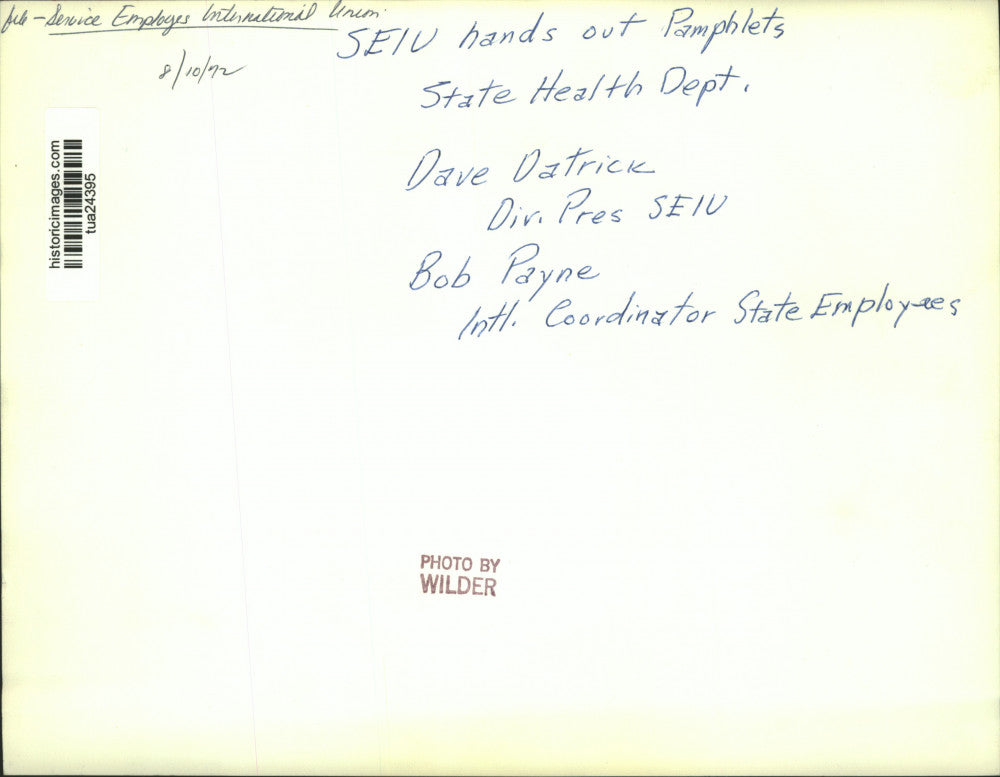 file - Service Employes International Union
SEIU hands out Pamphlets
8/10/72
State Health Dept.
historicimages.com
tua24395
Dave Datrick
Div. Pres SEIU
Bob Payne
Intl. Coordinator State Employees
PHOTO BY
WILDER